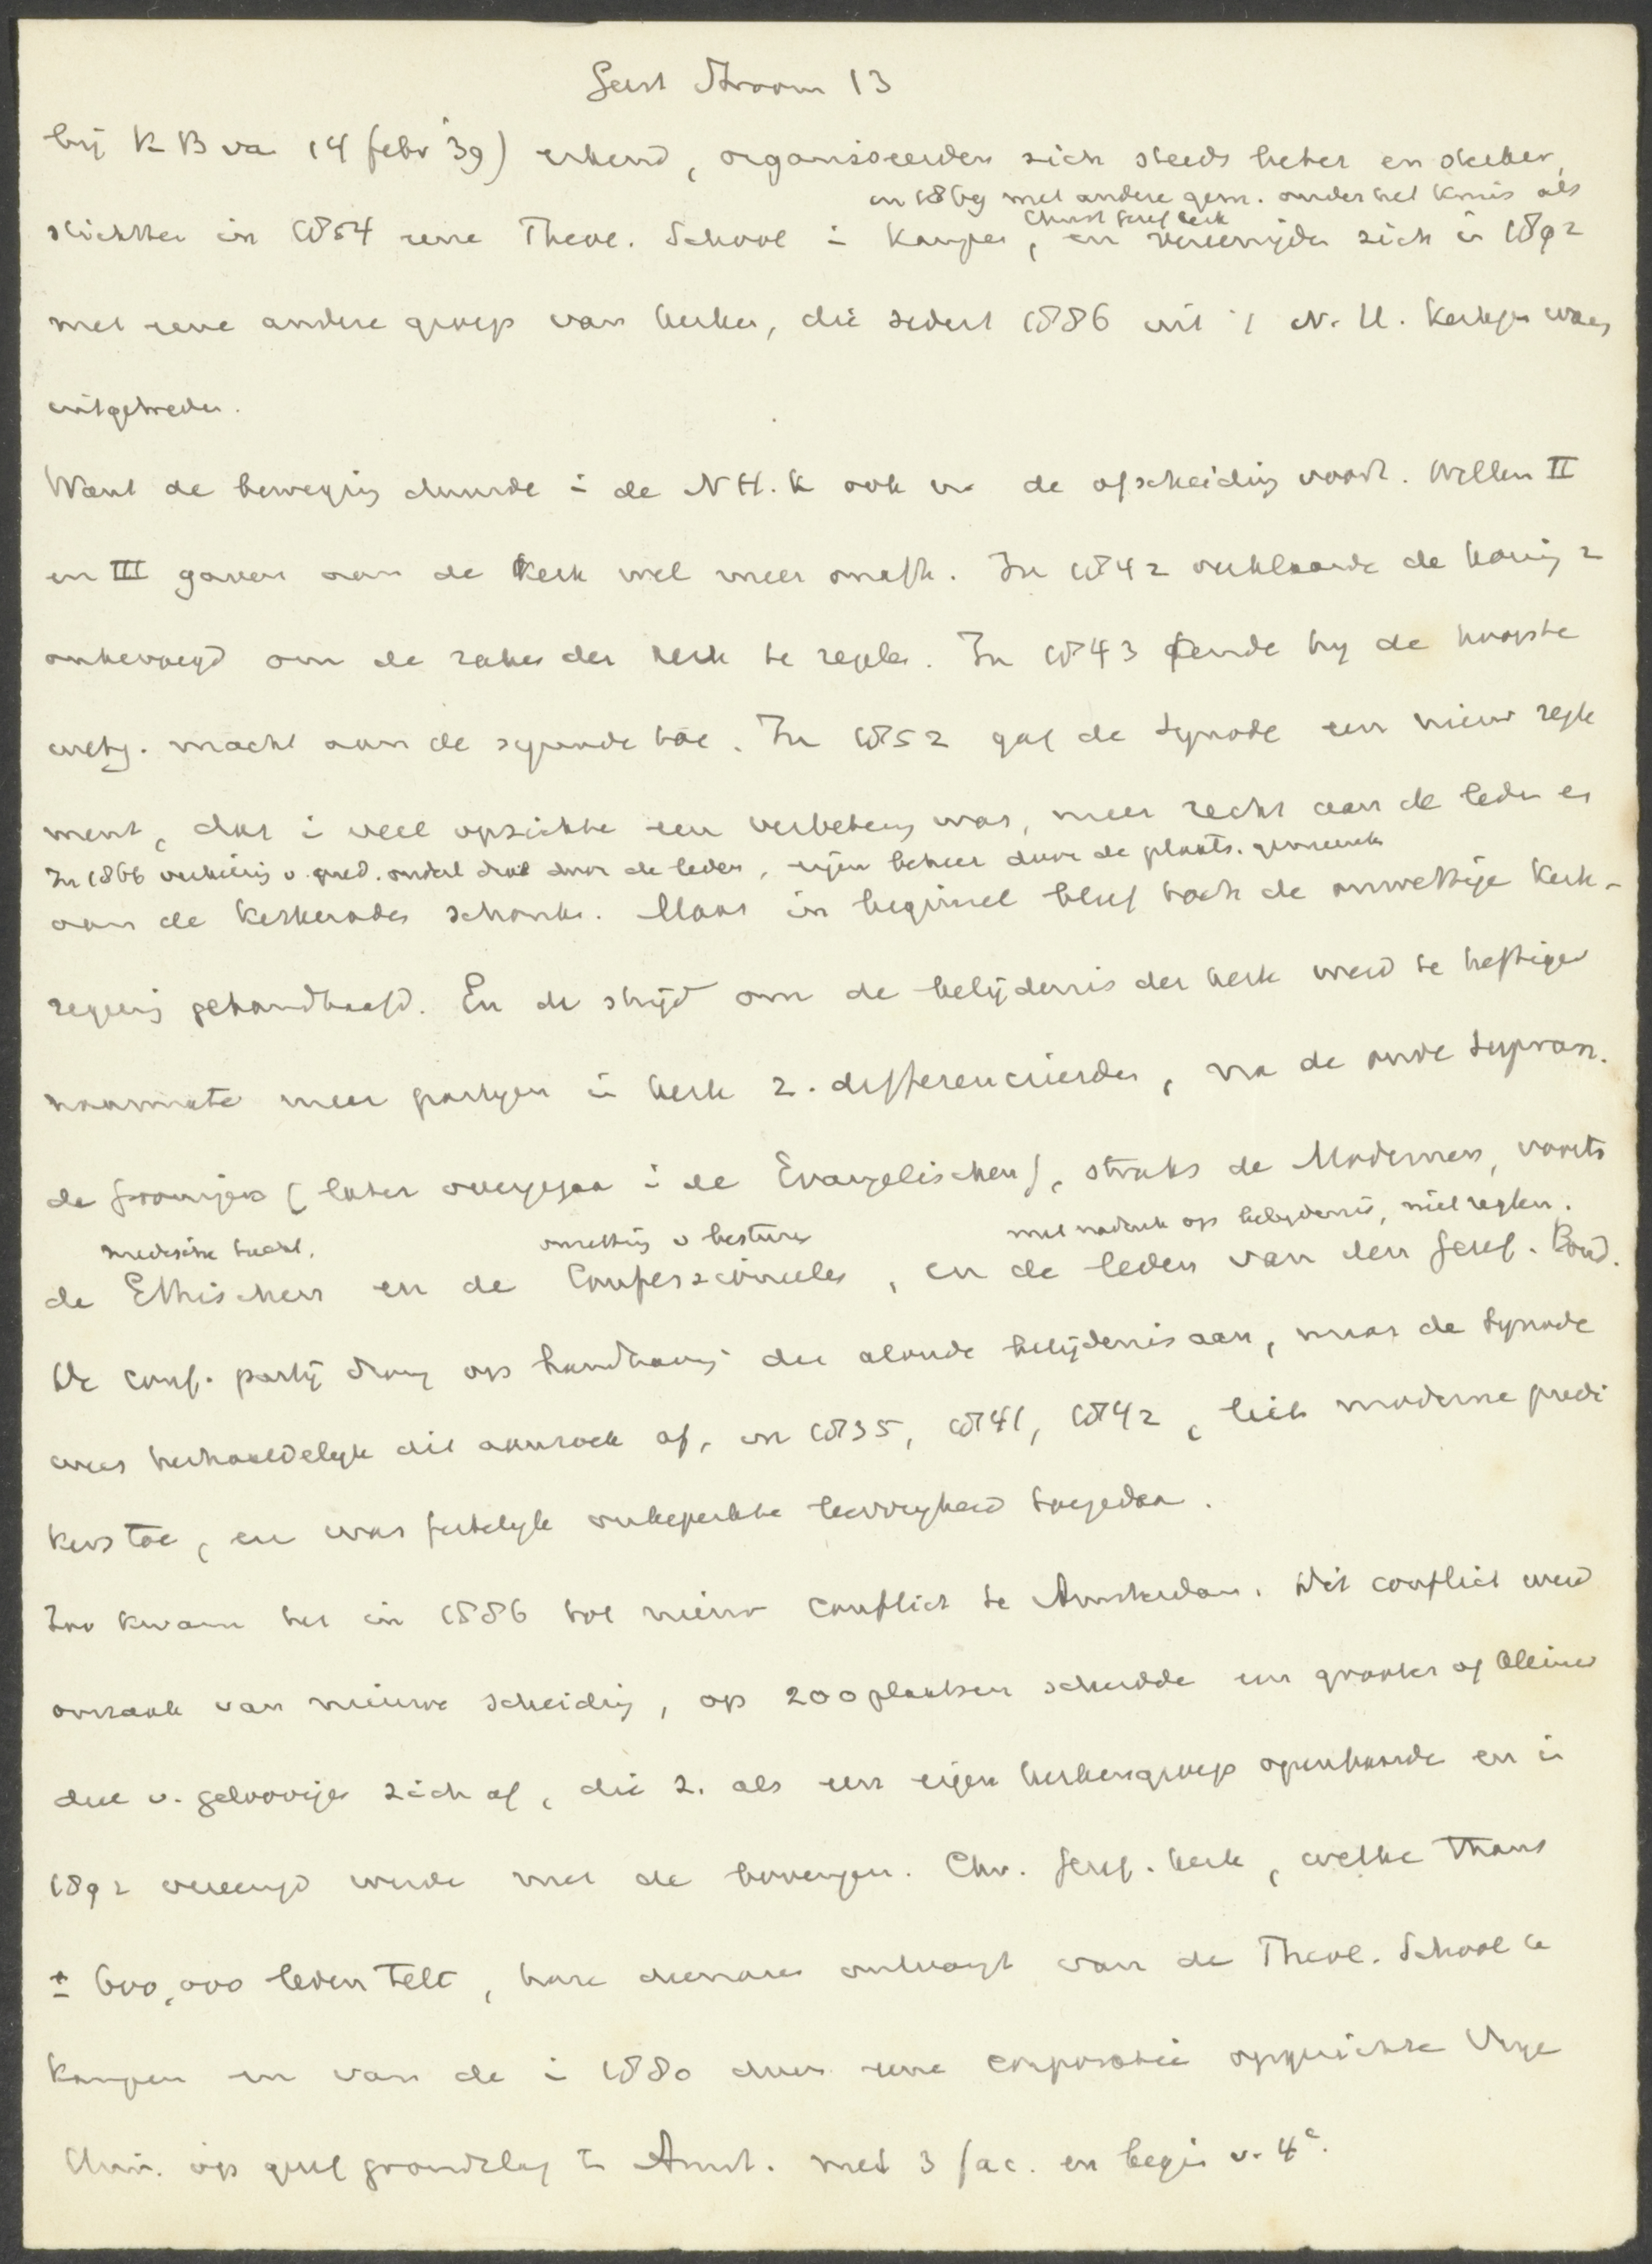 Geest Stroom 13
bij KB va 14 febr '39) erkend, organiseerden zich steeds beter en sterker,
en 1869 met andere gem. onder het kruis als
Christ Geref Kerk
stichtte in 1854 eene Theol. School i Kampen, en vereenigde zich i 1892
met eene andere groep van kerken, die sedert 1886 uit 't N. H. Kerkgen. was
uitgetreden.
Want de beweging duurde i de N H. K ook na de afscheiding voort. Willem II
en III gaven aan de Kerk wel meer macht. In 1842 verklaarde de koning z
onbevoegd om de zaken der kerk te regelen. In 1843 kende hij de hoogste
wetg. macht aan de synode toe. In 1852 gaf de Synode een nieuw regle
ment, dat i veel opzichten een verbetering was, meer recht aan de leden en
In 1866 verkiezing v. pred. ouderl. diak door de leden, eigen beheer door de plaats. gemeente
aan de kerkeraden schonk. Maar in beginsel bleef toch de onwettige kerk-
regering gehandhaafd. En de strijd om de belijdenis der kerk werd te heftiger
naarmate meer partijen i kerk z. differencieerden, na de oude supran.
de Groningers (later overgegaan i de Evangelischen), straks de Modernen, voorts
medische
omzetting v besturen
met nadruk op belijdenis, niet reglem.
de Ethischen en de Confessioneelen, en de leden van den Geref. Bond.
De conf. partij drong op handhaving der aloude belijdenis aan, maar de Synode
wees herhaaldelijk dit aanzoek af, in 1835, 1841, 1842, liet moderne predi
kers toe, en was feitelijk onbeperkte leervrijheid toegedaan.
Zoo kwam het in 1886 tot nieuw conflict te Amsterdam. Dit conflict werd
oorzaak van nieuwe scheiding, op 200 plaatsen scheidde een grooter of kleiner
deel v. geloovigen zich af, die z. als een eigen kerkengroep openbaarde en i
1892 vereenigd werde met de bovengen. Chr. Geref. Kerk, welke thans
± 600,000 leden telt, hare dienaren ontvangt van de Theol. School te
Kampen en van de i 1880 door eene corporatie opgerichte Vrije
Univ. op geref grondslag te Amst. met 3 fac. en begin v. 4e.